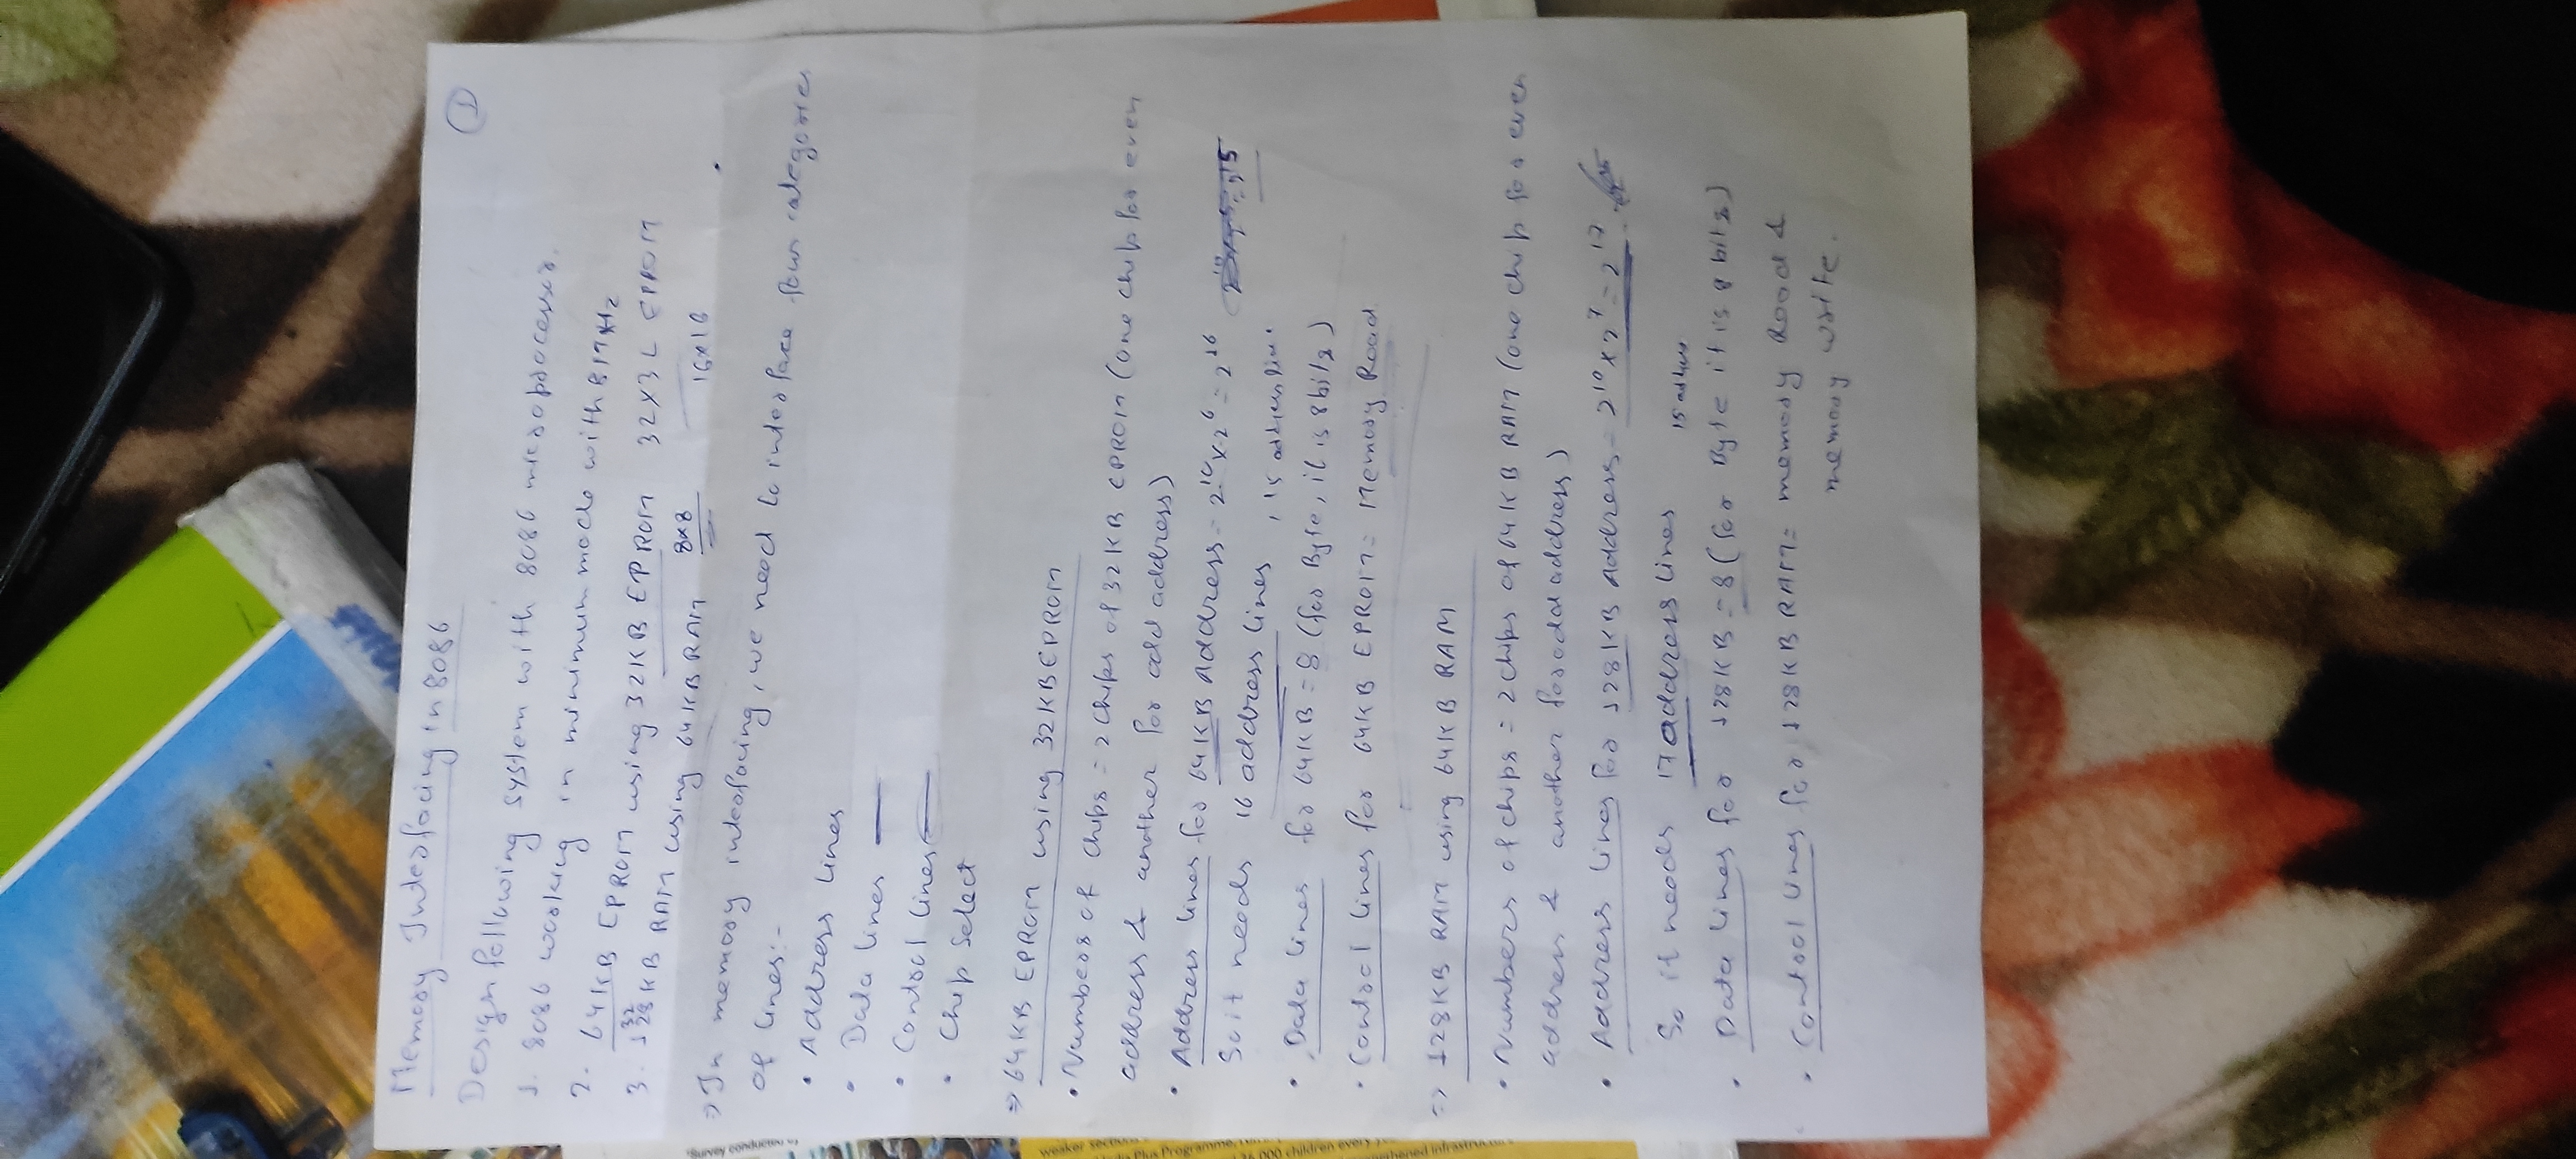 Memory Interfacing in 8086
1
Design following system with 8086 microprocessor.
1. 8086 working in minimum mode with 8 MHz
2. 64KB EPROM using 32KB EPROM 32x32 EPROM
3. 128KB RAM using 64KB RAM 16x16
32
8x8
⇒ In memory interfacing, we need to interface four categories
of lines:-
• Address lines
• Data lines
• Control lines
• Chip Select
⇒ 64KB EPROM using 32KB EPROM
• Numbers of chips = 2 chips of 32KB EPROM (one chip for even
address & another for odd address)
• Address lines for 64KB Address = 2^10 x 2^6 = 2^16
So it needs 16 address lines, 15 address lines
• Data lines for 64KB = 8 (for Byte, it is 8 bits)
• Control lines for 64KB EPROM = Memory Read
⇒ 128KB RAM using 64KB RAM
• Numbers of chips = 2 chips of 64KB RAM (one chip for even
address & another for odd address)
• Address lines for 128KB Address = 2^10 x 2^7 = 2^17
So it needs 17 address lines
• Data lines for 128KB = 8 (for Byte it is 8 bits)
• Control lines for 128KB RAM = memory Read &
memory write.